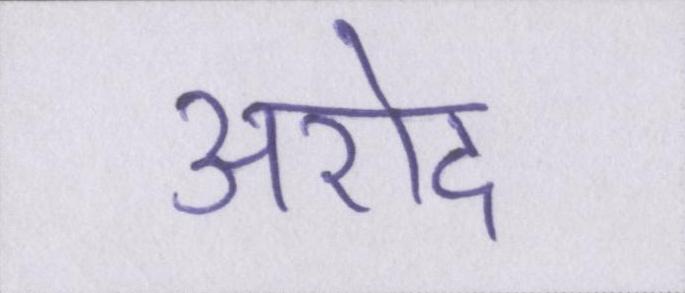 अरोद